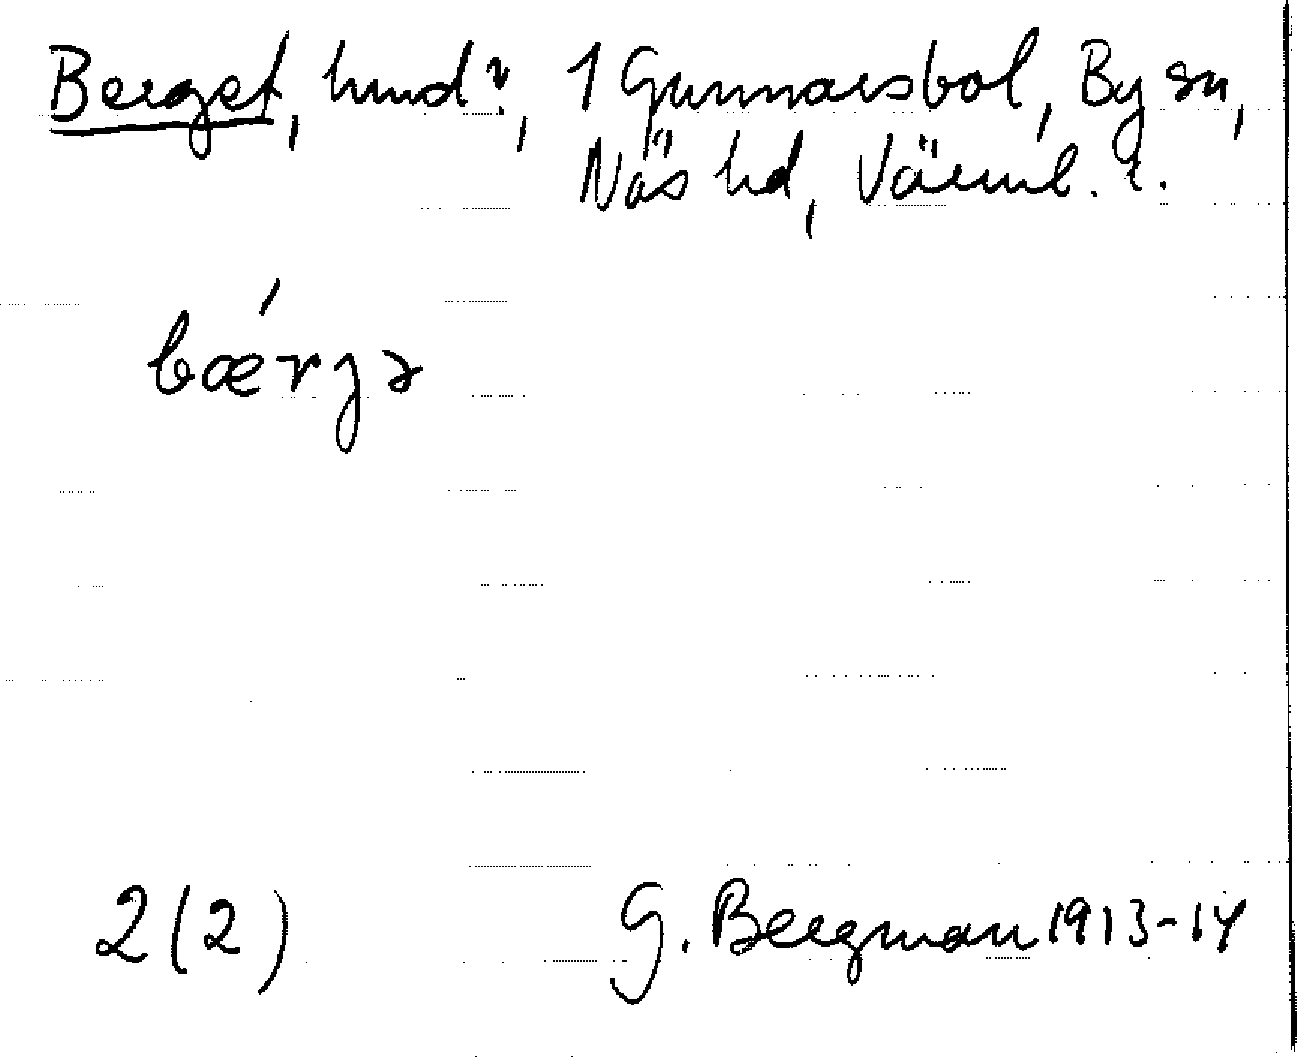 Berget, hmd?, 1 Gunnarsbol, By sn,
Näs hd, Värml. l.
bærjə
2(2) G. Bergman 1913-14